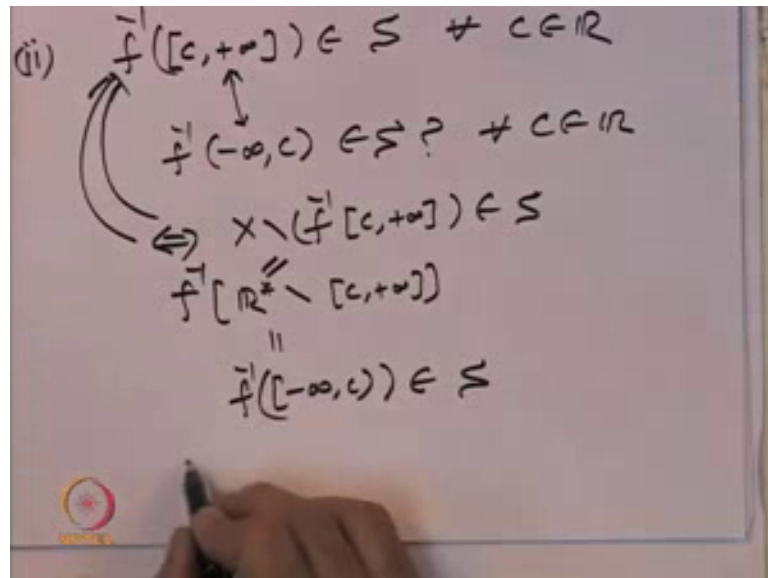 (ii) f⁻¹([c,+∞]) ∈ S ∀ c∈ℝ
↕
f⁻¹(-∞,c) ∈ S ? ∀ c∈ℝ
⇔ X∖(f⁻¹[c,+∞]) ∈ S
f⁻¹[ℝ*∖[c,+∞]]
॥
f⁻¹([-∞,c)) ∈ S